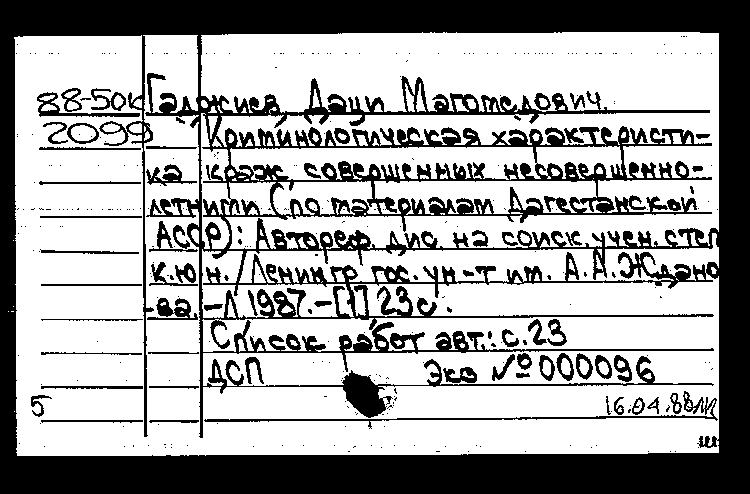 88-50к Гаджиев, Даци Магомедович.
2099 Криминологическая характеристи-
ка краж, совершенных несовершенно-
летними (по материалам Дагестанской
АССР): Автореф. дис. на соиск. учен. степ
к.ю.н. / Ленингр. гос. ун-т им. А.А. Ждано
-ва. -Л 1987.-[1] 23 с.
Список работ авт.: с. 23
ДСП Экз №000096
5 16.04.88